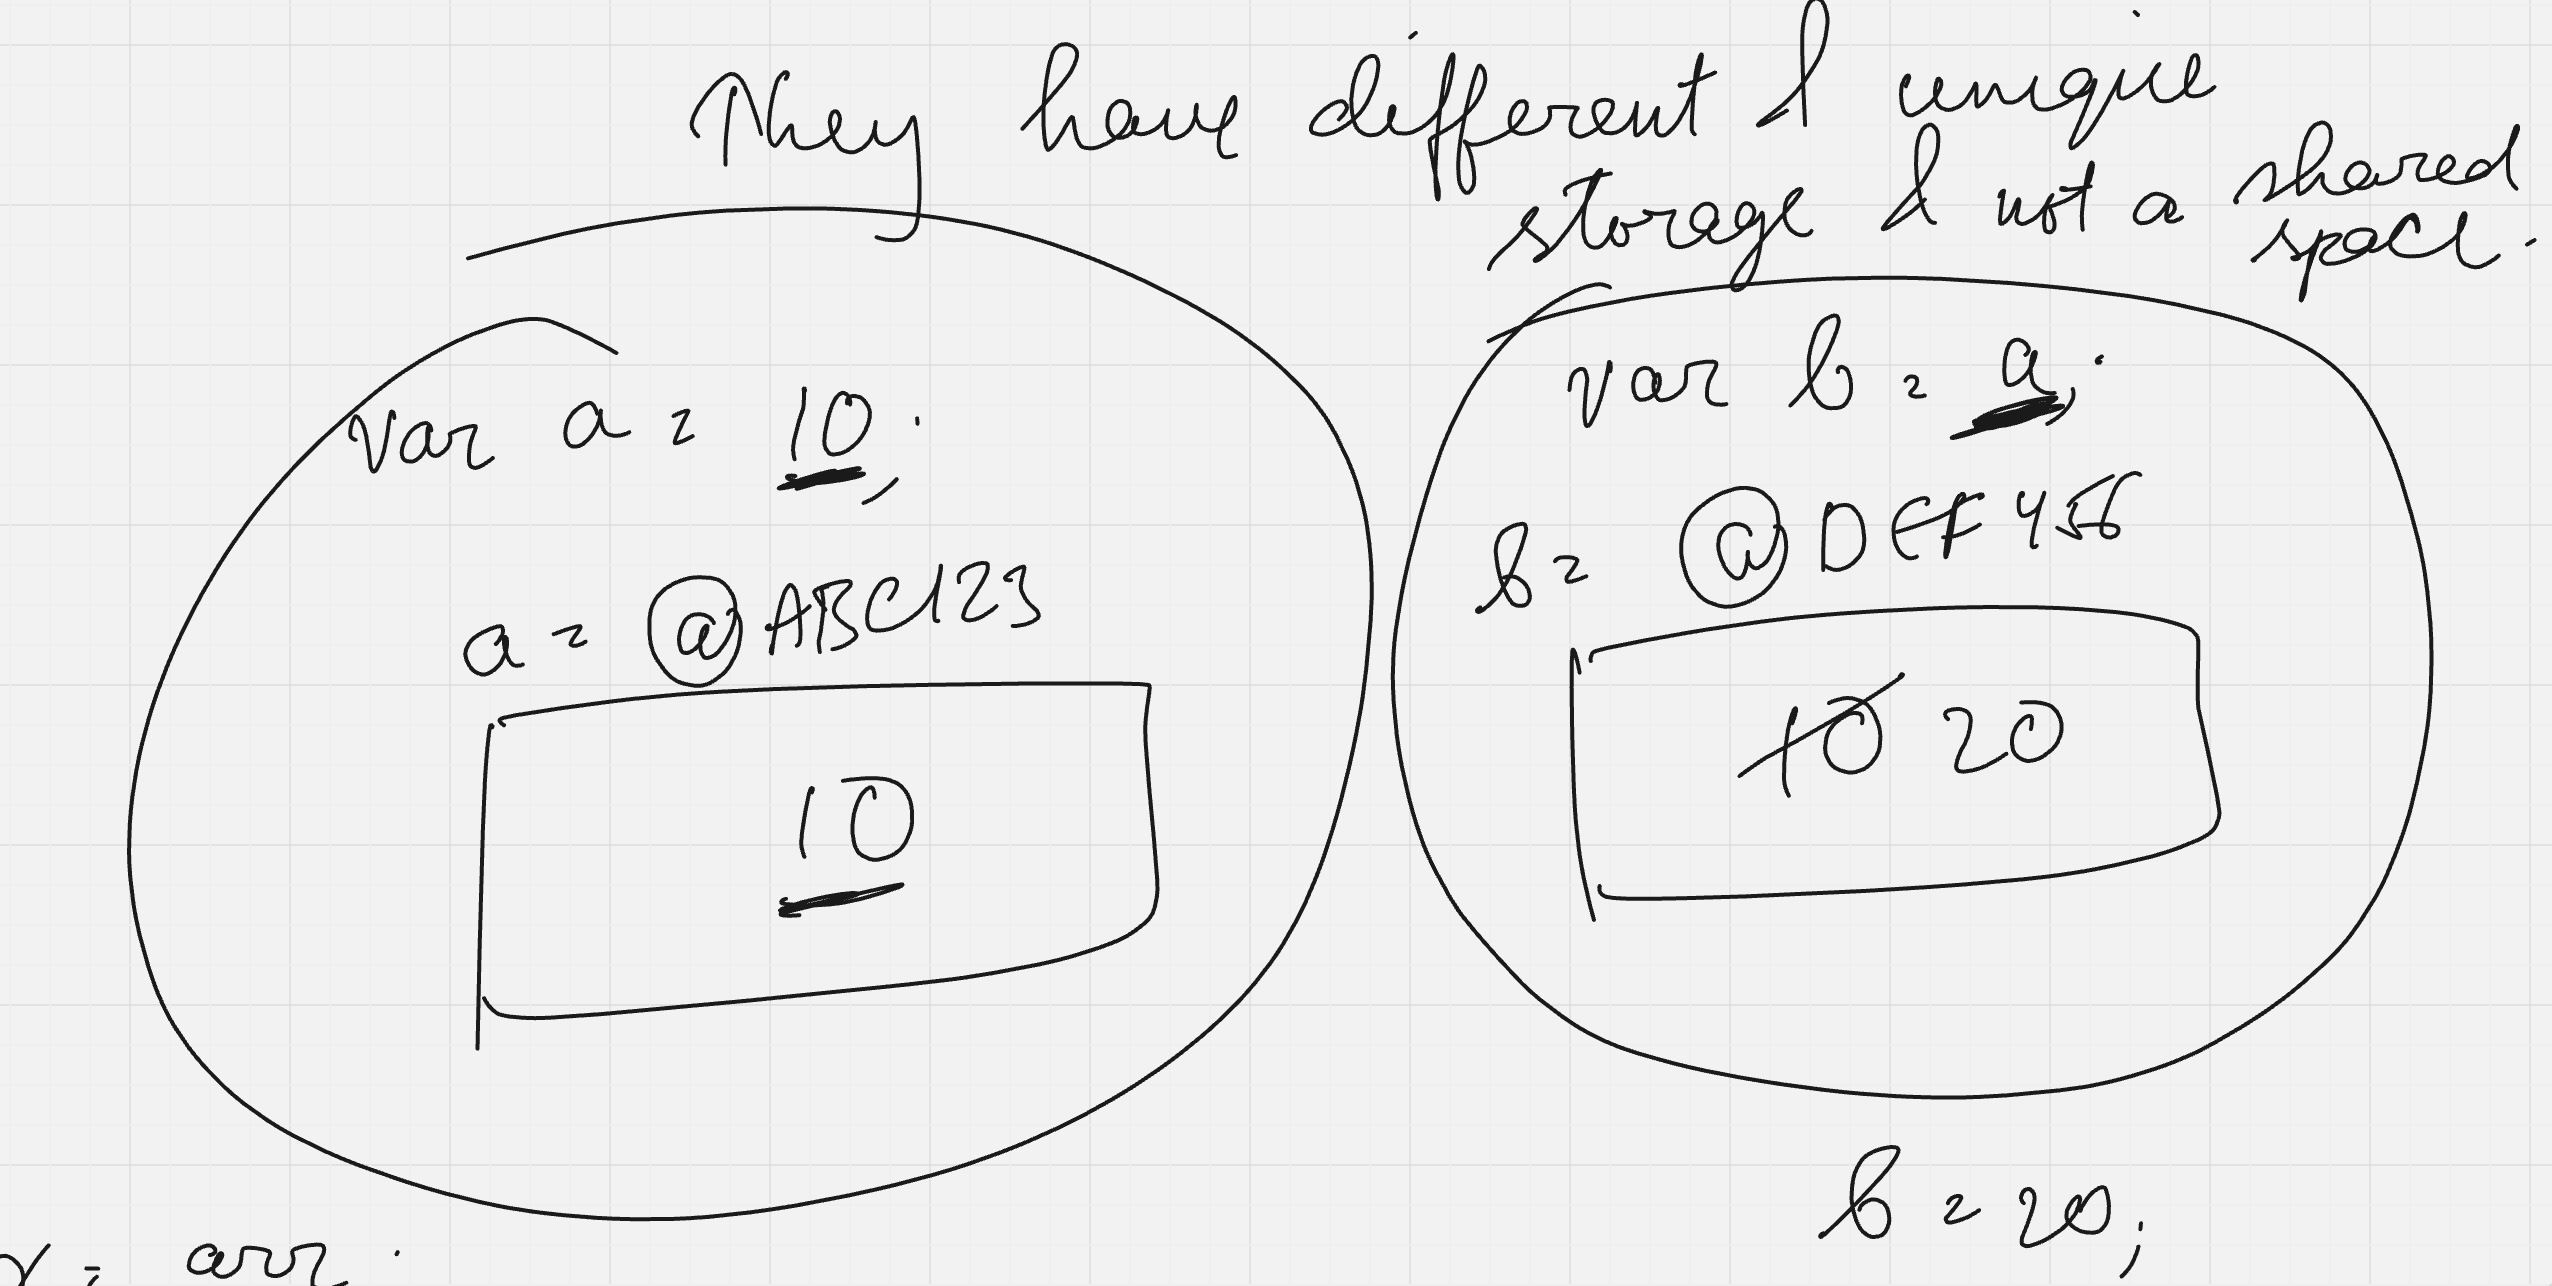 They have different & unique
storage & not a shared
space.
var a = 10;
a = @ABC123
10
var b = a;
b = @DEF456
10 20
b = 20;
= arr;